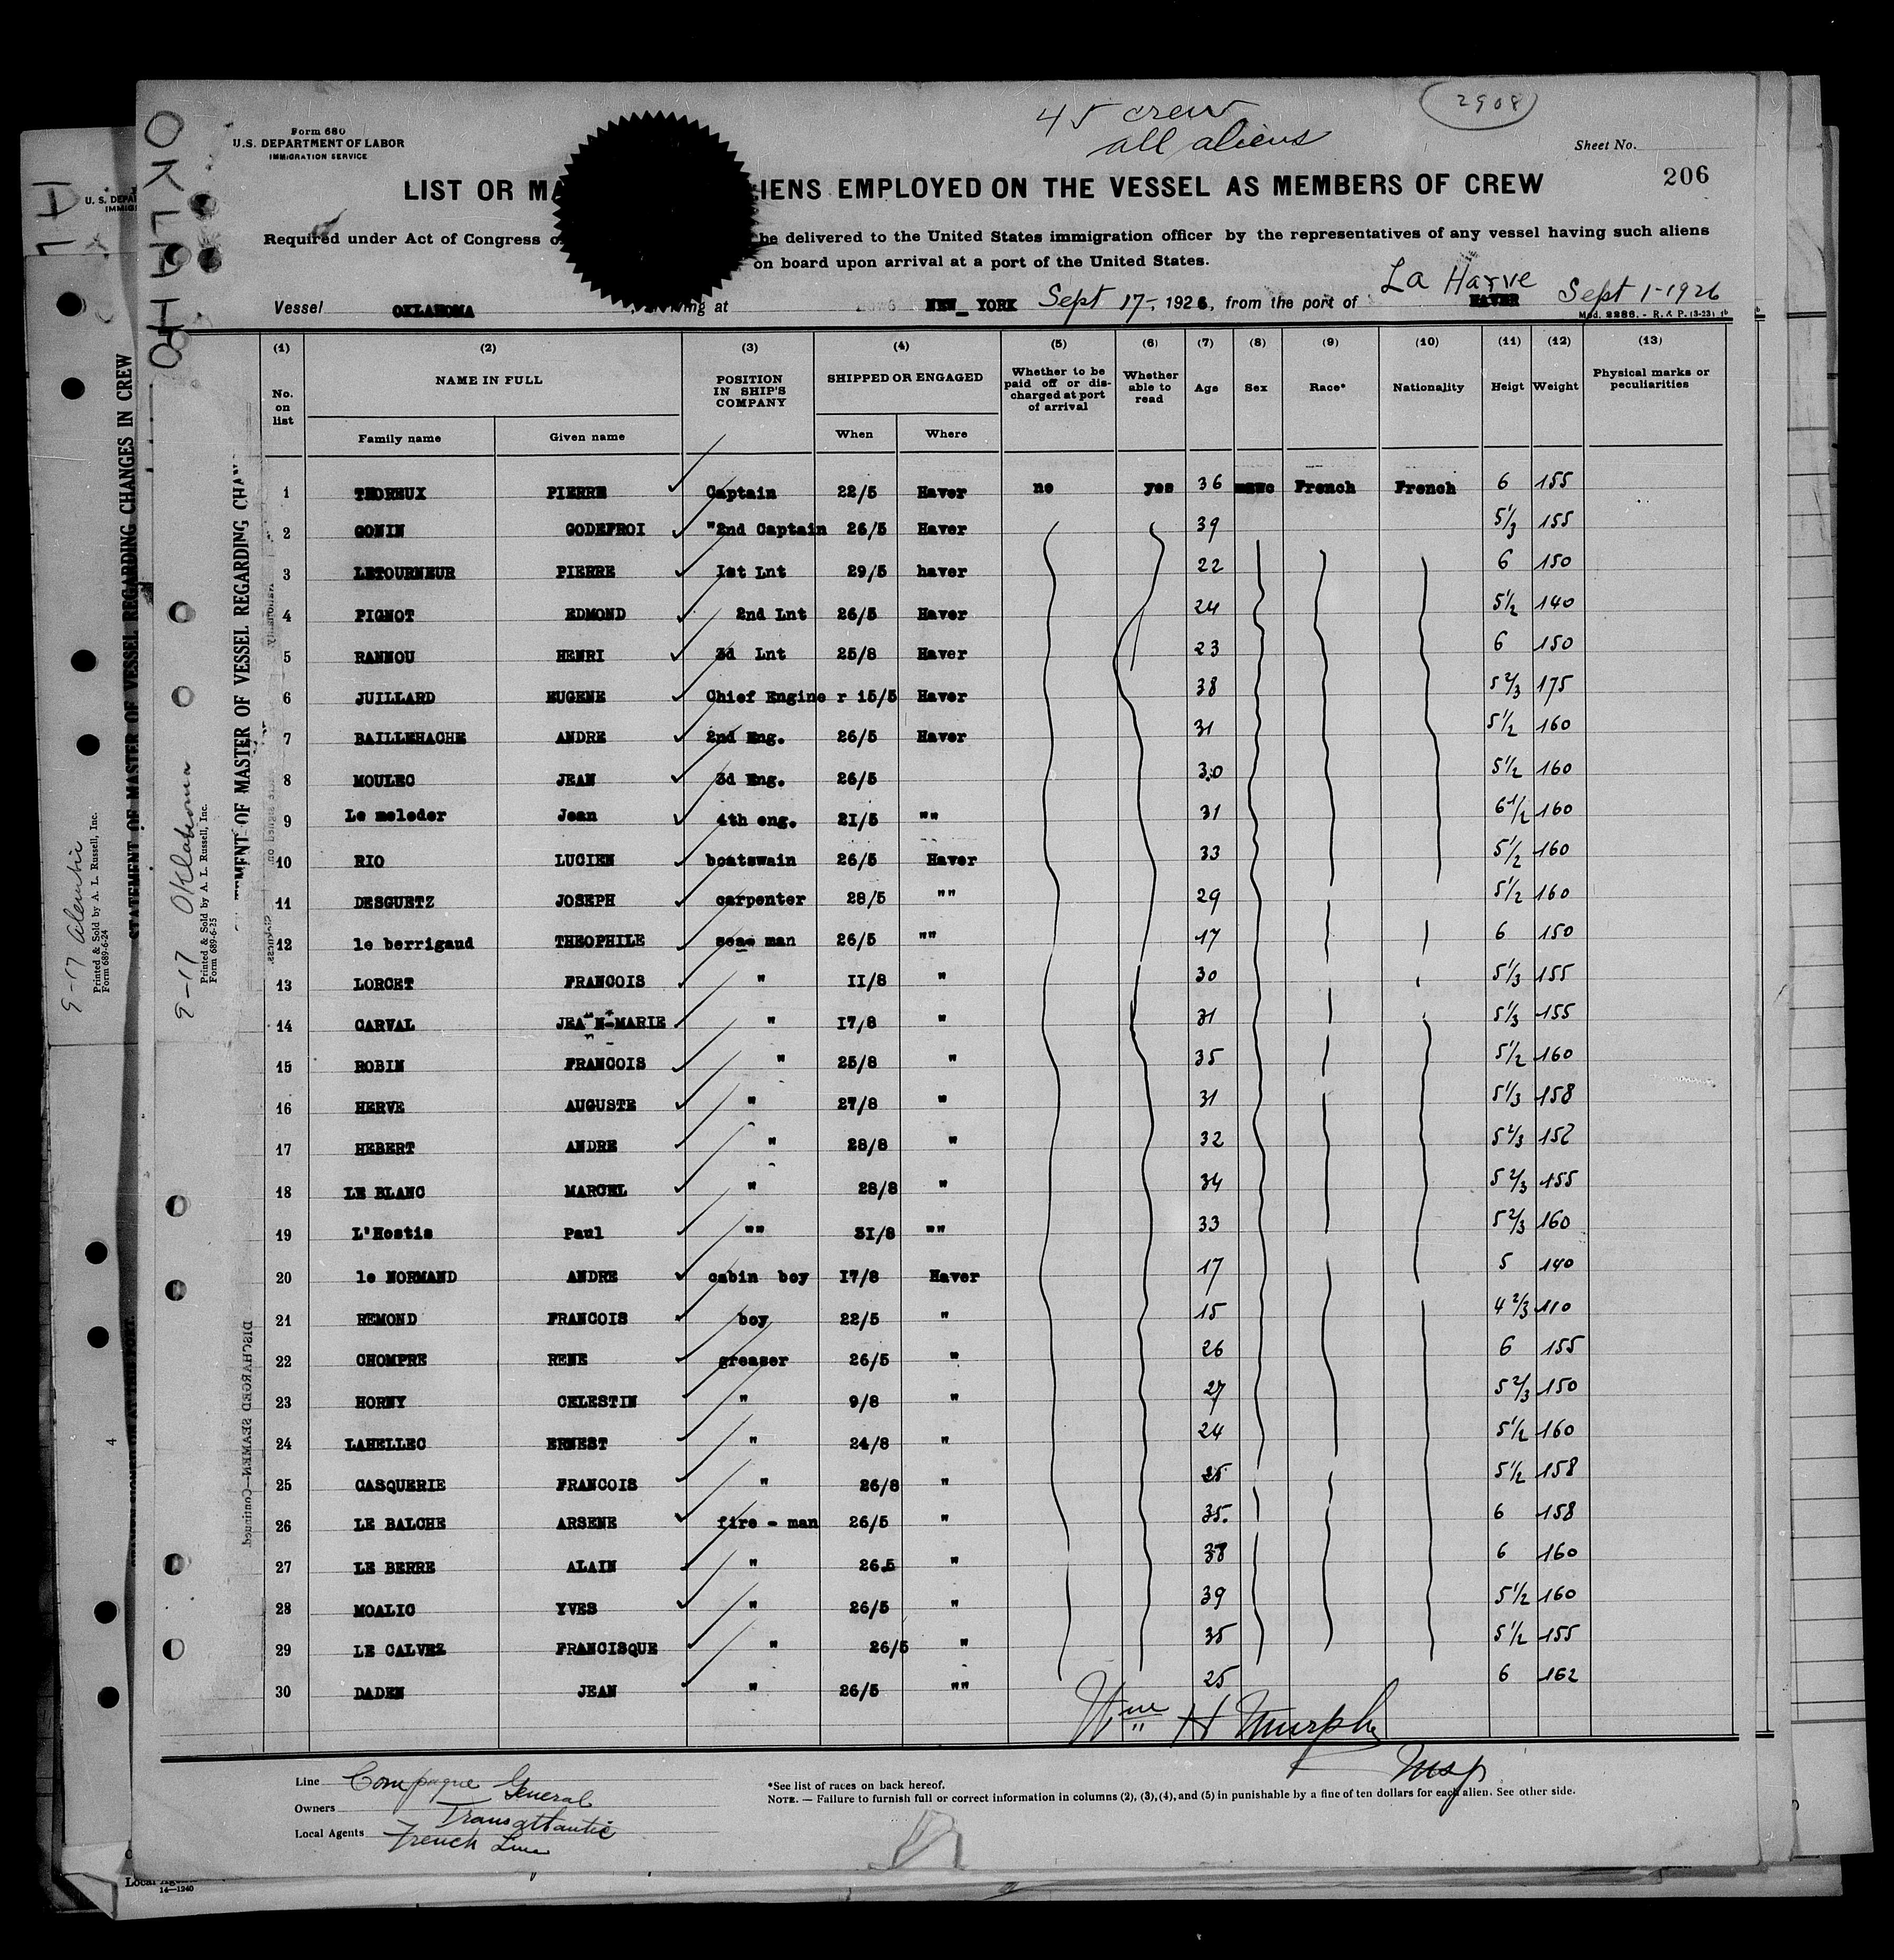 45 crew
all aliens
2908
Form 680
U.S. DEPARTMENT OF LABOR
IMMIGRATION SERVICE
Sheet No.
206
LIST OR MA IENS EMPLOYED ON THE VESSEL AS MEMBERS OF CREW
Required under Act of Congress o be delivered to the United States immigration officer by the representatives of any vessel having such aliens
on board upon arrival at a port of the United States.
Vessel OKLAHOMA at NEW YORK Sept 17- 1926, from the port of La Harve HAVER Sept 1-1926
Mod. 2286. - R. & P. (3-23)
(1) (2) (3) (4) (5) (6) (7) (8) (9) (10) (11) (12) (13)
No. on list NAME IN FULL POSITION IN SHIP'S COMPANY SHIPPED OR ENGAGED Whether to be paid off or discharged at port of arrival Whether able to read Age Sex Race* Nationality Heigt Weight Physical marks or peculiarities
Family name Given name When Where
1 THOREUX PIERRE Captain 22/5 Haver no yes 36 French French 6 155
2 GONIN GODEFROI "2nd Captain 26/5 Haver 39 5 1/3 155
3 LETOURNEUR PIERRE Ist Lnt 29/5 haver 22 6 150
4 PIGNOT EDMOND 2nd Lnt 26/5 Haver 24 5 1/2 140
5 RANNOU HENRI 3d Lnt 25/8 Haver 23 6 150
6 JUILLARD EUGENE Chief Engine r 15/5 Haver 38 5 2/3 175
7 BAILLEHACHE ANDRE 2nd Eng. 26/5 Haver 31 5 1/2 160
8 MOULEC JEAN 3d Eng. 26/5 30 5 1/2 160
9 Le meleder Jean 4th eng. 21/5 "" 31 6 1/2 160
10 RIO LUCIEN boatswain 26/5 Haver 33 5 1/2 160
11 DESGUETZ JOSEPH carpenter 28/5 "" 29 5 1/2 160
12 le berrigaud THEOPHILE sea man 26/5 "" 17 6 150
13 LORCET FRANCOIS " II/8 " 30 5 1/3 155
14 CARVAL JEAN-MARIE " I7/8 " 31 5 1/3 155
15 ROBIN FRANCOIS " 25/8 " 35 5 1/2 160
16 HERVE AUGUSTE " 27/8 " 31 5 1/3 158
17 HEBERT ANDRE " 28/8 " 32 5 2/3 152
18 LE BLANC MARCEL " 28/8 " 34 5 2/3 155
19 L'Hostis Paul "" 31/8 "" 33 5 2/3 160
20 le NORMAND ANDRE cabin boy I7/8 Haver 17 5 140
21 REMOND FRANCOIS boy 22/5 " 15 4 2/3 110
22 CHOMPRE RENE greaser 26/5 " 26 6 155
23 HORNY CELESTIN " 9/8 " 27 5 2/3 150
24 LAHELLEC ERNEST " 24/8 " 24 5 1/2 160
25 CASQUERIE FRANCOIS " 26/8 " 25 5 1/2 158
26 LE BALCHE ARSENE fire - man 26/5 " 35. 6 158
27 LE BERRE ALAIN " 26.5 " 38 6 160
28 MOALIC YVES " 26/5 " 39 5 1/2 160
29 LE CALVEZ FRANCISQUE " 26/5 " 35 5 1/2 155
30 DADEN JEAN " 26/5 "" 25 6 162
Wm H Murphy
Insp
Line Compagne General
Owners Transatlantic
Local Agents French Line
*See list of races on back hereof.
NOTE. — Failure to furnish full or correct information in columns (2), (3), (4), and (5) in punishable by a fine of ten dollars for each alien. See other side.
OKLAHO
STATEMENT OF MASTER OF VESSEL REGARDING CHANGES IN CREW
EMENT OF MASTER OF VESSEL REGARDING CHAN
9-17 Oklahoma
Printed & Sold by A. L. Russell, Inc.
Form 689-6-25
9-17
Printed & Sold by A. L. Russell, Inc.
Form 689-6-24
DISCHARGED SEAMEN—Continued
U. S. DEPA
IMMIG
4
14—1240